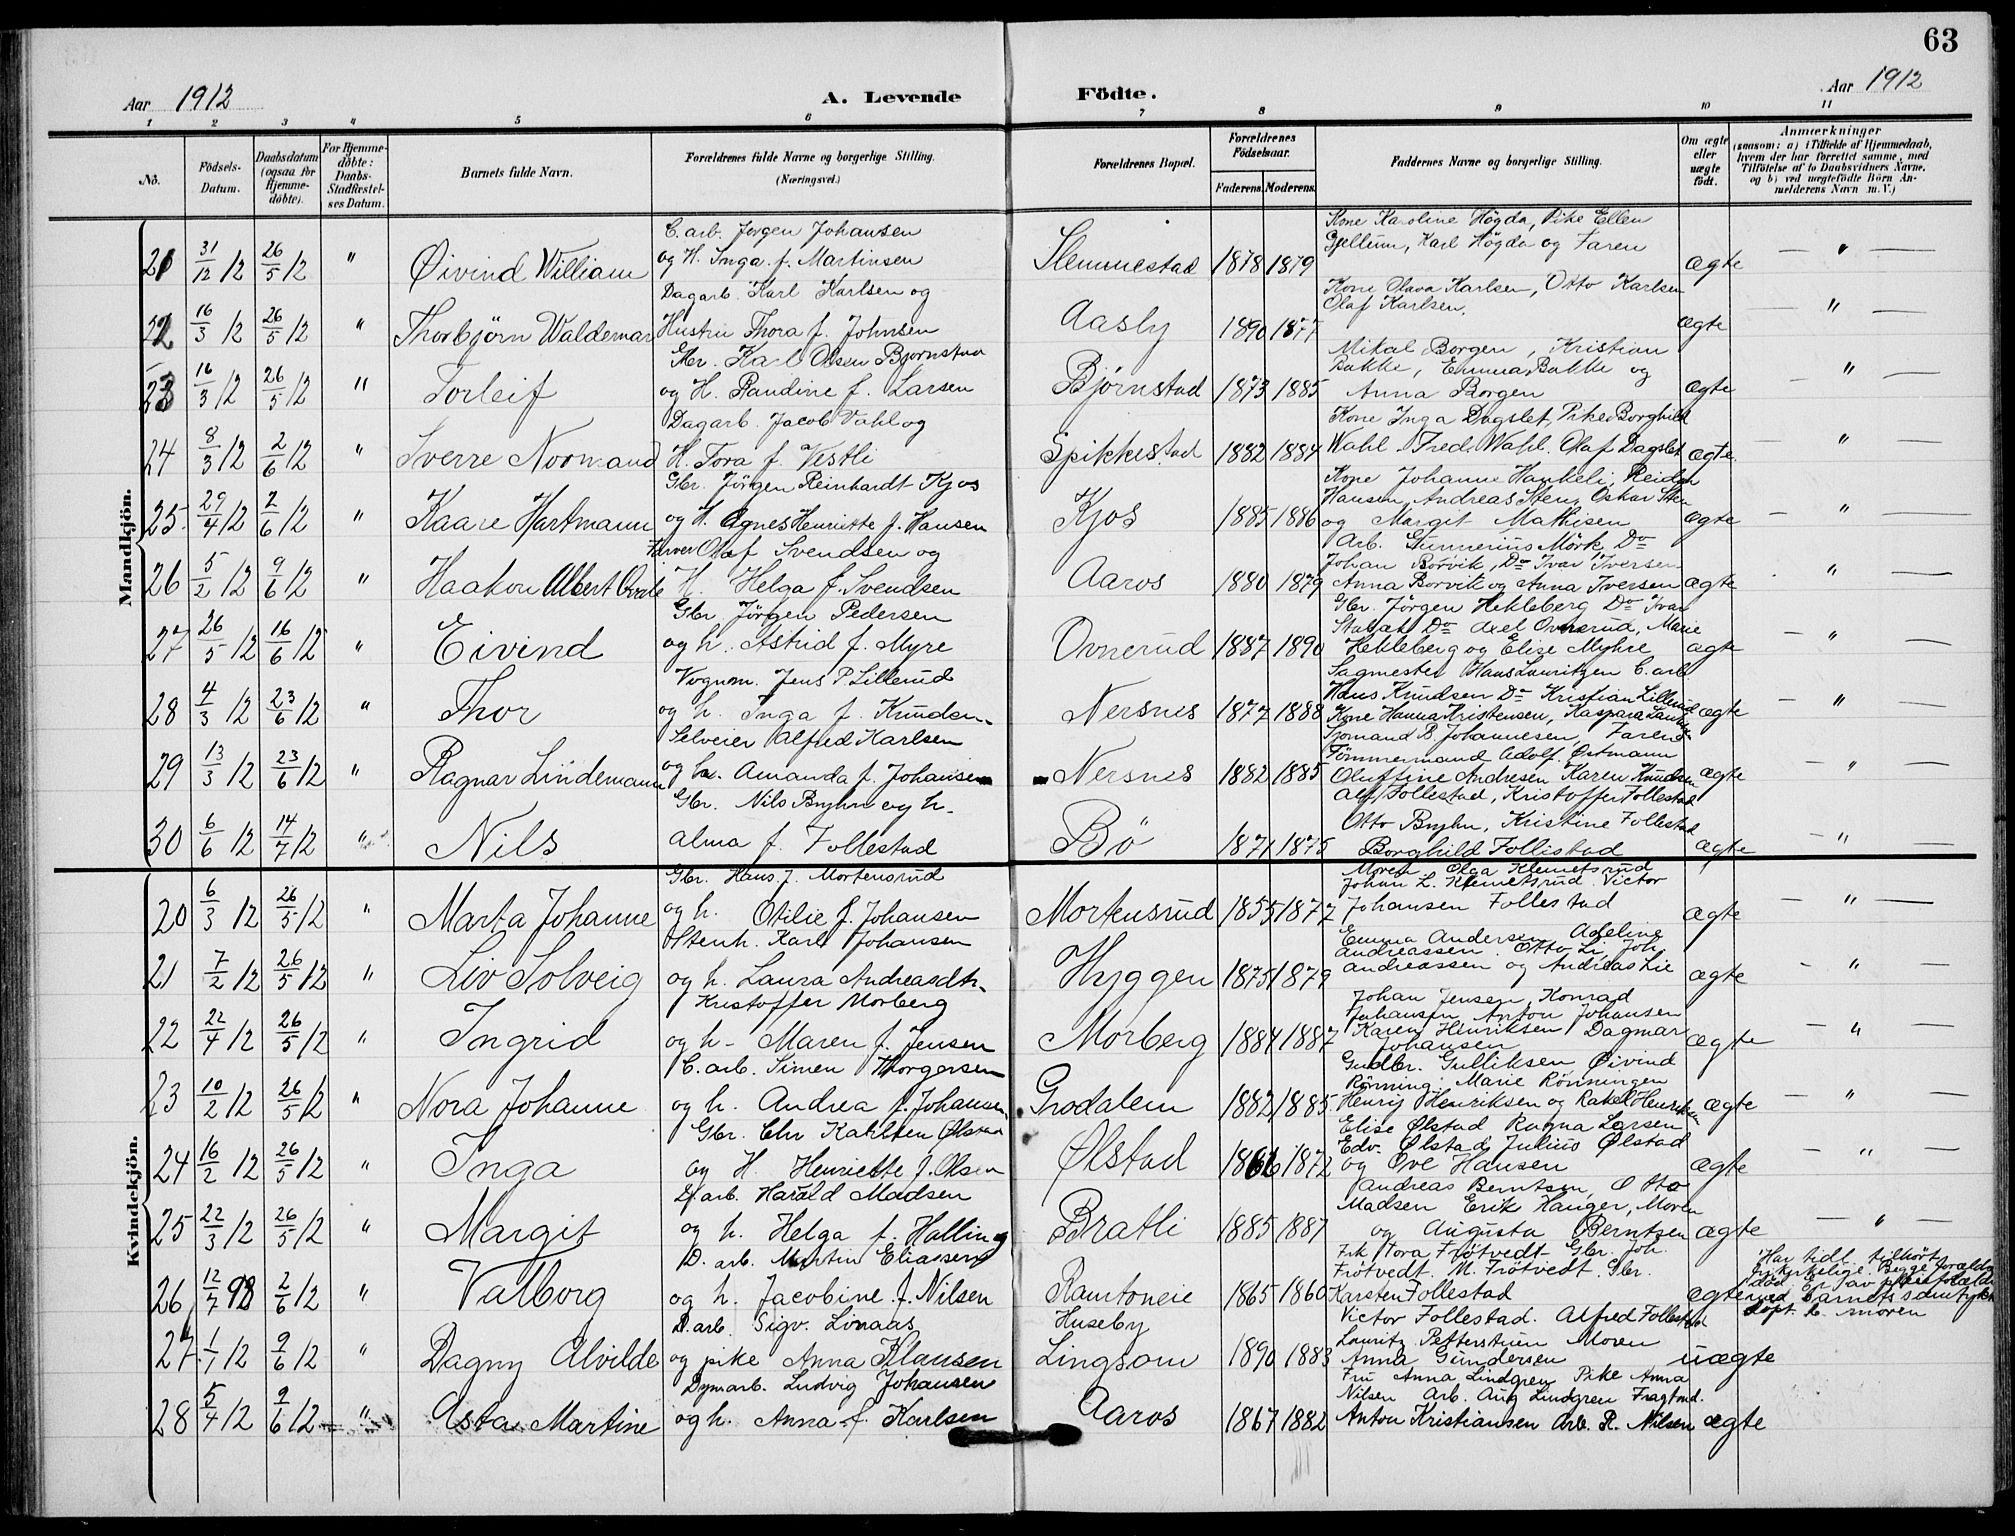 63
Aar 1912
A. Levende Födte.
Aar 1912
1 2 3 4 5 6 7 8 9 10 11
No.
Födsels-Datum.
Daabsdatum (ogsaa for Hjemme-döbte).
For Hjemme-döbte: Daabs-Stadfæstel-ses Datum.
Barnets fulde Navn.
Forældrenes fulde Navne og borgerlige Stilling. (Næringsvei.)
Forældrenes Bopæl.
Forældrenes Födselsaar.
Faderens. Moderens.
Faddernes Navne og borgerlige Stilling.
Om ægte eller uægte födt.
Anmærkninger
(saasom: a) i Tilfælde af Hjemmedaab, hvem der har forrettet samme, med Tilföielse af to Daabsvidners Navne, og b) ved uægtefödte Börn An-melderens Navn m. V.)
Mandkjön.
21 31/12 12 26/5 12 " Øivind William
C. arb. Jørgen Johansen
og H. Inga f. Martinsen
Slemmestad 1878 1879
Kone Karoline Högda, Pike Ellen
Gjellum, Karl Högda og Faren
ægte "
22 16/3 12 26/5 12 " Thorbjörn Waldemar
Dagarb. Karl Karlsen og
Hustru Thora f. Johnsen
Aasly 1890 1877
Kone Olava Karlsen, Otto Karlsen
Olaf Karlsen.
ægte "
23 16/3 12 26/5 12 " Torleif
Gbr. Karl Olsen Bjørnstad
og H. Randine f. Larsen
Bjørnstad 1873 1885
Mikal Borgen, Kristian
Bakke, Emma Bakke og
Anna Borgen
ægte "
24 8/3 12 2/6 12 " Sverre Normand
Dagarb. Jacob Vahl og
H. Tora f. Vestli
Spikkestad 1882 1884
Kone Inga Dagslet, Pike Borghild
Wahl Fred. Wahl. Olaf Dagslet
ægte "
25 29/4 12 2/6 12 " Kaare Hartmann
Gbr. Jörgen Reinhardt Kjos
og H. Agnes Henriette f. Hansen
Kjos 1885 1886
Kone Johanne Hankeli, Reidar
Hansen, Andreas Sten, Oskar Sten
og Margit Mathisen
ægte "
26 5/2 12 9/6 12 " Haakon Albert
Olaf Svendsen og
H. Helga f. Svendsen
Aaros 1880 1879
Arb. Gunnerius Mörk, Do
Johan Borvik, Do Ivar Iversen
Anna Borvik og Anna Iversen
ægte "
27 26/5 12 16/6 12 " Eivind
Gbr. Jörgen Pedersen
og h. Astrid f. Myre
Ovnerud 1887 1890
Gbr. Jörgen Hekleberg Do Ivar
Do Axel Ovnerud, Marie
Hekleberg og Elise Myhre
ægte "
28 4/3 12 23/6 12 " Thor
Vognm. Jens P. Lillerud
og h. Inga f. Knudsen
Nersnes 1877 1888
Sagmester Hans Lauritzen C. arb.
Hans Knudsen Do Kristian Lillerud
Kone Hanna Kristensen, Kaspara
ægte "
29 13/3 12 23/6 12 " Ragnar Lindemann
Selveier Alfred Karlsen
og h. Amanda f. Johansen
Nersnes 1882 1885
Sjömand B. Johannesen, Faren
Tömmermand Adolf Östmann
Oluffine Andresen Karen Knudsen
ægte "
30 6/6 12 14/7 12 " Nils
Gbr. Nils Bryhn og h.
Alma f. Follestad
Bö 1871 1875
Alf Follestad, Kristoffer Follestad
Otto Bryhn, Kristine Follestad
Borghild Follestad
ægte "
Kvindekjön.
20 6/3 12 26/5 12 " Marta Johanne
Gbr. Hans J. Mortensrud
og h. Otilie f. Johansen
Mortensrud 1855 1877
Moren, Olga Klemetsrud
Johan L. Klemetsrud Victor
Johansen Follestad
ægte "
21 7/2 12 26/5 12 " Liv Solveig
Stenh. Karl Johansen
og h. Laura Andreasdtr.
Hyggen 1875 1879
Emma Andersen Adeline
Andreassen. Otto Li, Joh.
Andreassen og Andreas Lie
ægte "
22 22/4 12 26/5 12 " Ingrid
Kristoffer Morberg
og h. Maren f. Jensen
Morberg 1884 1887
Johan Jensen, Konrad
Johansen Anton Johansen
Karen Henriksen Dagmar
Johansen
ægte "
23 10/2 12 26/5 12 " Nora Johanne
C. arb. Simen Thorgersen
og h. Andrea f. Johansen
Grodalen 1882 1885
Gudbr. Gulliksen Øivind
Rönning. Marie Rönningen
Henrij Henriksen og Rakel Henriksen
ægte "
24 16/2 12 26/5 12 " Inga
Gbr. Chr Karlsen Ølstad
og H. Henriette f. Olsen
Ølstad 1866 1872
Elise Ølstad Ragna Larsen
Edv. Ølstad, Julius Ølstad
og Ove Hansen
ægte "
25 22/3 12 26/5 12 " Margit
D. arb. Harald Madsen
og h. Helga f. Halling
Bratli 1885 1887
Andreas Berntsen, Otto
Madsen Erik Hanger, Moren
og Augusta Berntsen
ægte "
26 12/7 98 2/6 12 " Valborg
D. arb. Martin Eliassen
og h. Jacobine f. Nilsen
Ramtoneie 1865 1860
Frk Tora Frötvedt Gbr. Joh.
Frötvedt. M. Frötvedt. Gbr.
Karsten Follestad
ægte
Har tidl. tilhört
frikirkelige. Begge forældre
död. Er av pleieforældre
med barnets samtykke
döpt.
27 1/1 12 9/6 12 " Dagny Alvilde
D. arb. Sigv. Lönaas
og pike Anna Klausen
Huseby
Lingsom 1890 1883
Victor Follestad. Alfred Follestad
Lauritz Petterstuen Moren
Anna Gundersen
uægte
moren
28 5/4 12 9/6 12 " Asta Martine
Dynarb. Ludvig Johansen
og h. Anna f. Karlsen
Aaros 1867 1882
Fru Anna Lindgren Pike Anna
Nilsen Arb. Aug Lindgren Fragtmd.
Anton Kristiansen Arb. R. Nilsen
ægte